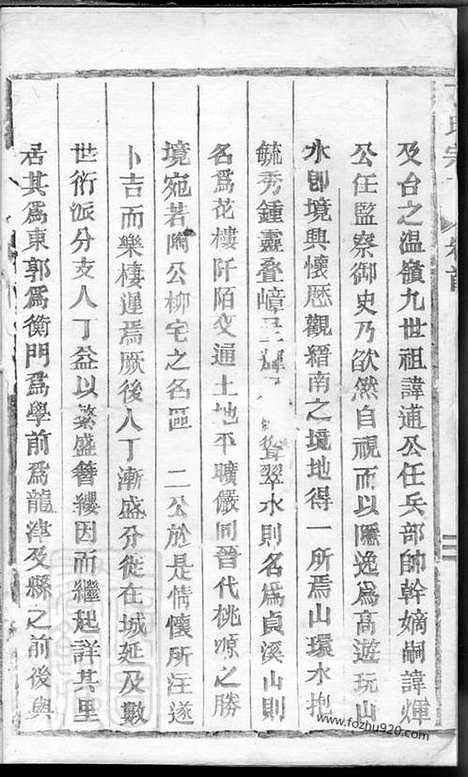 及台之温嶺九世祖諱通公任兵部帥幹嫡嗣諱煇
公任監察御史乃欲然自視而以隱逸爲高遊玩山
水卽境興懷歷觀縉南之境地得一所焉山環水抱
毓秀鍾靈叠嶂聳翠水則名爲貞溪山則
名爲花樓阡陌交通土地平曠儼同晉代桃源之勝
境宛若陶公柳宅之名區 二公於是情懷所注遂
卜吉而樂棲遲焉厥後人丁漸盛分徙在城延及數
世衍派分支人丁益以繁盛簪纓因而繼起詳其里
居其爲東郭爲衡門爲學前爲龍津及縣之前後與
氏宗 卷首
www.fozhu920.com